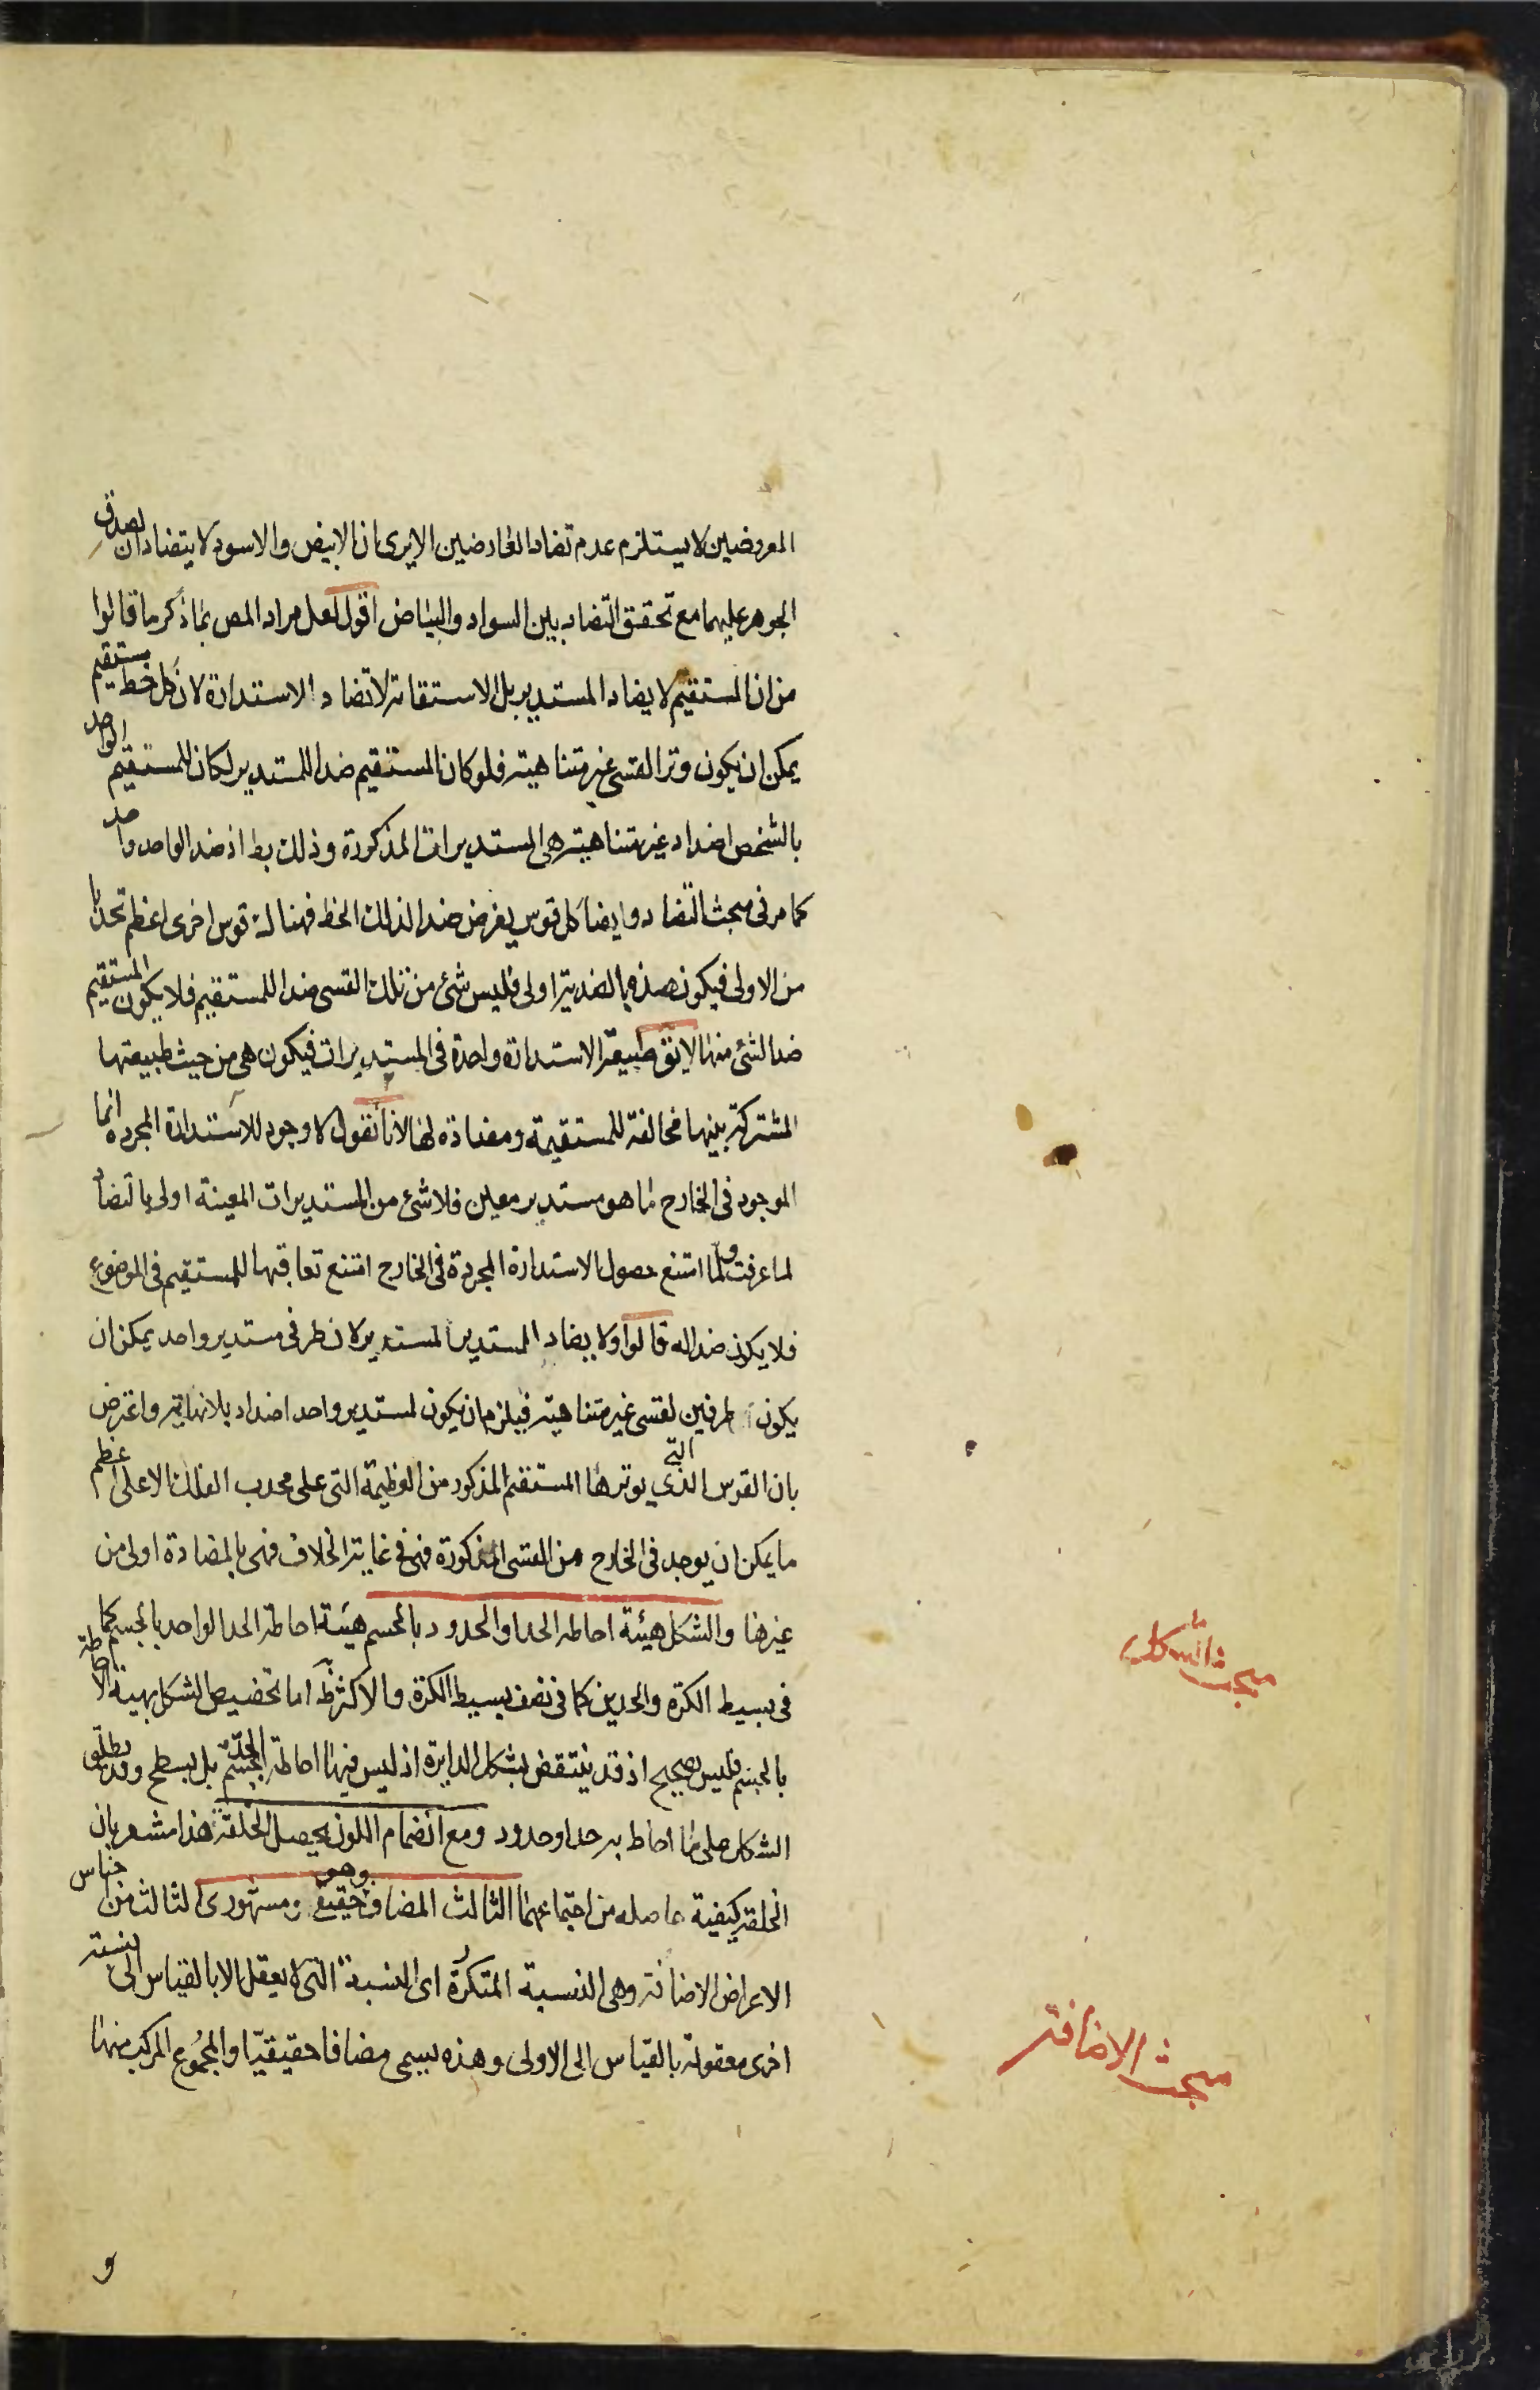 المعروضين لا يستلزم عدم تضاد العارضين الا يرى ان الابيض والاسود لا يتضادان لصدق
الجوهر عليهما مع تحقق التضاد بين السواد والبياض اقول لعل مراد المص بما ذكر ما قالوا
من ان المستقيم لا يضاد المستدير بل الاستقامة لا تضاد الاستدارة لان كل خط مستقيم
يمكن ان يكون وترا لقسى غير متناهية فلو كان المستقيم ضدا للمستدير لكان للمستقيم الواحد
بالشخص اضداد غير متناهية هى المستديرات المذكورة وذلك بط اذ ضد الواحد واحد
كما مر فى مبحث التضاد وايضا كل قوس يفرض ضدا لذلك الخط فهناك قوس اخرى اعظم تحدبا
من الاولى فيكون هذه بالضدية اولى فليس شئ من تلك القسى ضدا للمستقيم فلا يكون المستقيم
ضد الشئ منها لايق طبيعة الاستدارة واحدة فى المستديرات فيكون هى من حيث طبيعتها
المشتركة بينها مخالفة للمستقيمة ومضادة لها لانا نقول لا وجود للاستدارة المجردة انما
الموجود فى الخارج ما هو مستدير معين فلا شئ من المستديرات المعينة اولى بالتضاد
لما عرفت ولما امتنع حصول الاستدارة المجردة فى الخارج امتنع تعاقبها للمستقيم فى الموضوع
فلا يكون ضدا له قالوا ولا يضاد المستدير المستدير لان طرفى مستدير واحد يمكن ان
يكون طرفين لقسى غير متناهية فيلزم ان يكون لمستدير واحد اضداد بلا نهاية واعترض
بان القوس الذي التى يوترها المستقيم المذكور من العظيمة التى على محدب الفلك الاعلى اعظم
ما يمكن ان يوجد فى الخارج من القسى المذكورة فهى فى غاية الخلاف فهى بالمضادة اولى من
غيرها والشكل هيئة احاطة الحد او الحدود بالجسم هيئة احاطة الحد الواحد بالجسم كما
فى بسيط الكرة والحدين كما فى نصف بسيط الكرة والاكثر ظ اما تخصيص الشكل بهيئة الاحاطة
بالجسم فليس بصحيح اذ قد ينتقض بشكل الدايرة اذ ليس فيها احاطة الحد بالجسم بل بسطح وقد يطلق
الشكل على ما احاط به حد او حدود ومع انضمام اللون يحصل الخلقة هذا مشعر بان
الخلقة كيفية حاصلة من اجتماعهما الثالث المضاف وهو حقيقى ومشهورى الثالث من اجناس
الاعراض الاضافة وهى النسبة المتكررة اى النسبة التى لا يعقل الا بالقياس الى نسبة
اخرى معقولة بالقياس الى الاولى وهذه يسمى مضافا حقيقيّا والمجموع المركب منها
و
مبحث الشكل
مبحث الاضافة